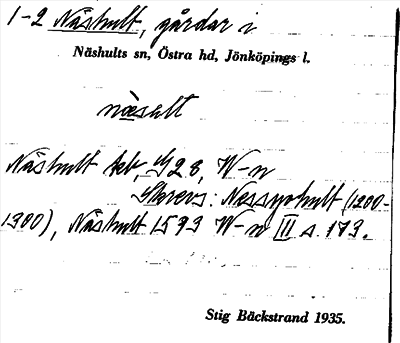 1-2 Näshult, gårdar i
Näshults sn, Östra hd, Jönköpings l.
näsult
Näshult tek, G 28, W-n
Skrevs: Nessyohult (1200-
1300), Näshult 1593 W-n II s. 173.
Stig Bäckstrand 1935.